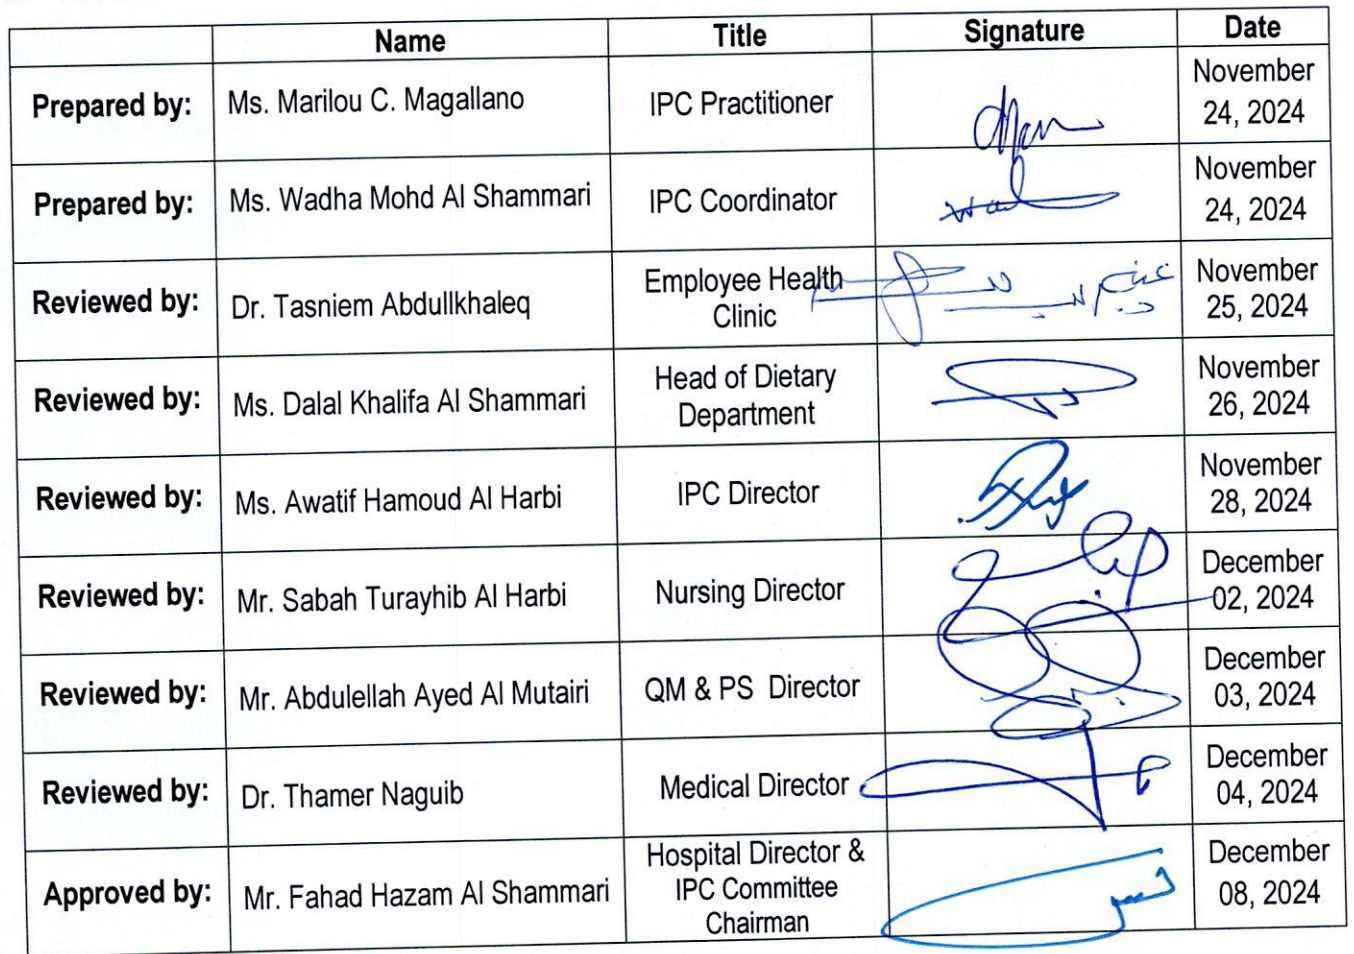 Name Title Signature Date
Prepared by: Ms. Marilou C. Magallano IPC Practitioner November
24, 2024
Prepared by: Ms. Wadha Mohd Al Shammari IPC Coordinator November
24, 2024
Reviewed by: Dr. Tasniem Abdullkhaleq Employee Health
Clinic November
25, 2024
Reviewed by: Ms. Dalal Khalifa Al Shammari Head of Dietary
Department November
26, 2024
Reviewed by: Ms. Awatif Hamoud Al Harbi IPC Director November
28, 2024
Reviewed by: Mr. Sabah Turayhib Al Harbi Nursing Director December
02, 2024
Reviewed by: Mr. Abdulellah Ayed Al Mutairi QM & PS Director December
03, 2024
Reviewed by: Dr. Thamer Naguib Medical Director December
04, 2024
Approved by: Mr. Fahad Hazam Al Shammari Hospital Director &
IPC Committee
Chairman December
08, 2024